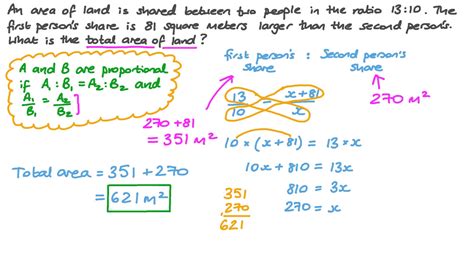 An area of land is shared between two people in the ratio 13:10. The
first person's share is 81 square meters larger than the second person's.
What is the total area of land?
first person's : Second person's
share share
A and B are proportional
if A₁:B₁ = A₂:B₂ and
A₁/B₁ = A₂/B₂
270+81
= 351 m²
270 m²
13/10 = x+81/x
10 × (x+81) = 13 × x
10x + 810 = 13x
810 = 3x
270 = x
Total area = 351 + 270
= 621 m²
351
+270
621